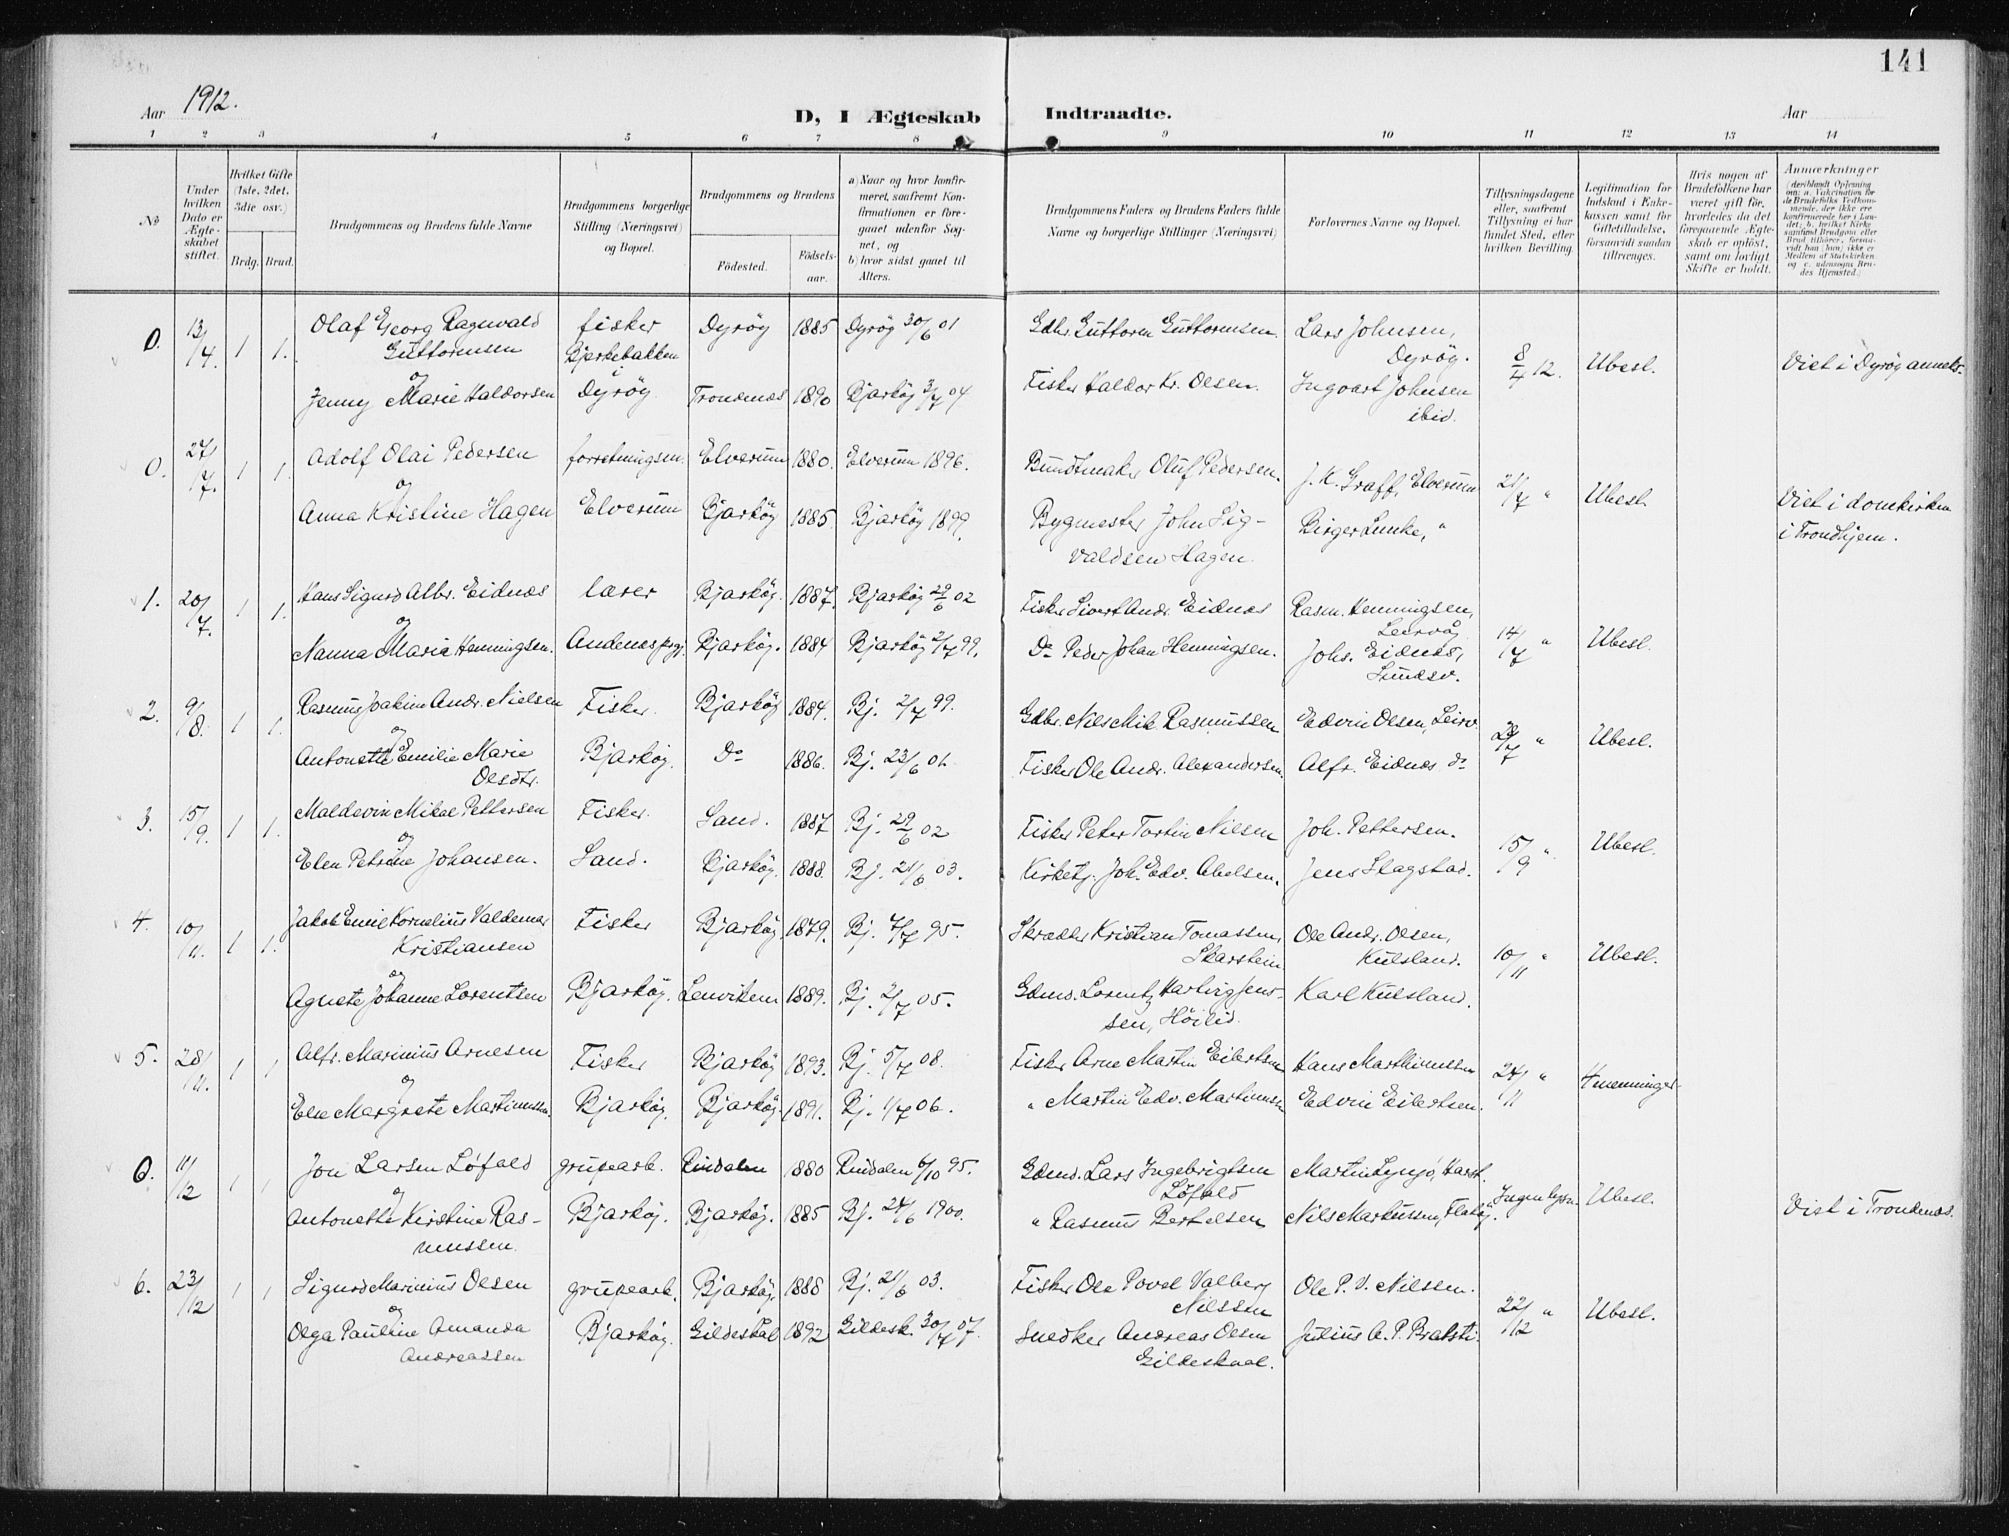 141
Aar 1912.
D, I Ægteskab Indtraadte.
Aar
1 2 3 4 5 6 7 8 9 10 11 12 13 14
No
Under hvilken Dato er Ægteskabet stiftet.
Hvilket Gifte (1ste, 2det, 3die osv.)
Brdg. Brud.
Brudgommens og Brudens fulde Navne
Brudgommens borgerlige Stilling (Næringsvei) og Bopæl.
Brudgommens og Brudens
Fødested. Fødselsaar.
a) Naar og hvor konfirmeret, saafremt Konfirmationen er foregaaet udenfor Sognet, og
b) hvor sidst gaaet til Alters.
Brudgommens Faders og Brudens Faders fulde Navne og borgerlige Stillinger (Næringsvei)
Forlovernes Navne og Bopæl.
Tillysningsdagene eller, saafremt Tillysning ei har fundet Sted, efter hvilken Bevilling.
Legitimation for Indskud i Enkekassen samt for Giftetilladelse, forsaavidt saadan tiltrænges.
Hvis nogen af Brudefolkene har været gift før, hvorledes da det foregaaende Ægteskab er opløst, samt om lovligt Skifte er holdt.
Anmærkninger
(deriblandt Oplysning om: a. Vakcination for de Brudefolks Vedkommende, der ikke ere konfirmerede her i Landet; b. hvilket Kirkesamfund Brudgom eller Brud tilhører, forsaavidt han (hun) ikke er Medlem af Statskirken og c. udensogns Brudes Hjemsted.)
0. 13/4. 1 1. Olaf Georg Ragnvald fisker Dyrøy 1885 Dyrøy 30/6 01 Gdbr Guttorm Guttormsen. Lars Johnsen,
Guttormsen Bjerkebakken Dyrøy. 8/4 12. Ubesl. Viet i Dyrøy anneks.
og i
Jenny Marie Haldorsen Dyrøy Trondenæs 1890 Bjarkøy 3/7 04 Fisker Haldor Kr. Olsen. Ingvart Johnsen
ibid.
0. 27/7. 1 1. Adolf Olai Pedersen forretningsm. Elverum 1880. Elverum 1896. Bundtmaker Oluf Pedersen. J. K. Graff, Elverum 21/7 " Ubesl. Viet i domkirken
og i Trondhjem.
Anna Kristine Hagen Elverum Bjarkøy 1885. Bjarkøy 1899. Bygmester John Sig- Birger Lunke, "
valdsen Hagen.
1. 20/7. 1 1. Hans Sigurd Albr. Eidnes lærer Bjarkøy. 1887. Bjarkøy 29/6 02 Fisker Sivert Andr. Eidnes Rasm. Henningsen,
og Leirvåg
Nanna Maria Henningsen. Andenes prgj. Bjarkøy. 1884 Bjarkøy 2/7 99. Do Peder Johan Henningsen. Johs. Eidnes, 14/7 " Ubesl.
Sundsv.
2. 9/8. 1 1. Rasmus Joakim Andr. Nielsen Fisker. Bjarkøy 1884. Bj. 2/7 99. Gdbr. Nils Mik. Rasmussen Edvin Olsen, Leirv.
og
Antonette Emilie Marie Bjarkøy. Do 1886. Bj. 23/6 01. Fisker Ole Andr. Alexandersen. Alfr. Eidnes do " Ubesl.
Olsdtr.
3. 15/9. 1 1. Maldevin Mikal Pettersen Fisker. Sand. 1887 Bj. 29/6 02 Fisker Peter Tortin Nilsen Joh. Pettersen. 15/9 " Ubesl.
og
Elen Petrine Johansen. Sand. Bjarkøy. 1888. Bj. 21/6 03. Kirketj. Joh. Edv. Abelsen. Jens Slagstad.
4. 10/11. 1 1. Jakob Emil Kornelius Valdemar Fisker Bjarkøy. 1879. Bj. 7/7 95. Skrædder Kristian Tomassen, Ole Andr. Olsen,
Kristiansen Skarstein Kulsland. 10/11 " Ubesl.
og
Agnete Johanne Lorentsen Bjarkøy. Lenviken 1889. Bj. 2/7 05. Gdmd. Lorentz Hartvig Jens- Karl Kulsland.
sen, Høilid.
5. 28/11. 1 1 Alfr. Marinius Arnesen Fisker Bjarkøy 1893. Bj. 5/7 08. Fisker Arne Martin Eilertsen Hans Marthinussen 24/11 " 4menninger
og
Elen Margrete Martinussen. Bjarkøy. Bjarkøy. 1891. Bj. 1/7 06. " Martin Edv. Martinussen Edvin Eilertsen.
0. 11/12 1 1 Jon Larsen Løfald grupearb. Rindalen 1880 Rindalen 6/10 95. Gdmd. Lars Ingebrigtsen Martin Lynjø, Harst.
og Løfald Ingen lysn. Ubesl.
Antonette Kirstine Ras- Bjarkøy. Bjarkøy. 1885 Bj. 24/6 1900. " Rasmus Bertelsen Nils Markussen, Flatøy. Viet i Trondenæs.
mussen.
6. 23/12 1 1 Sigurd Marinius Olsen grupearb. Bjarkøy. 1888 Bj. 21/6 03. Fisker Ole Povel Valberg Ole P. V. Nilssen.
og Nilssen 22/12 " Ubesl.
Olga Pauline Amanda Bjarkøy. Gildeskål 1892 Gildesk. 30/7 07. Snedker Andreas Olsen Julius A. P. Bratsti.
Andreassen Gildeskaal.